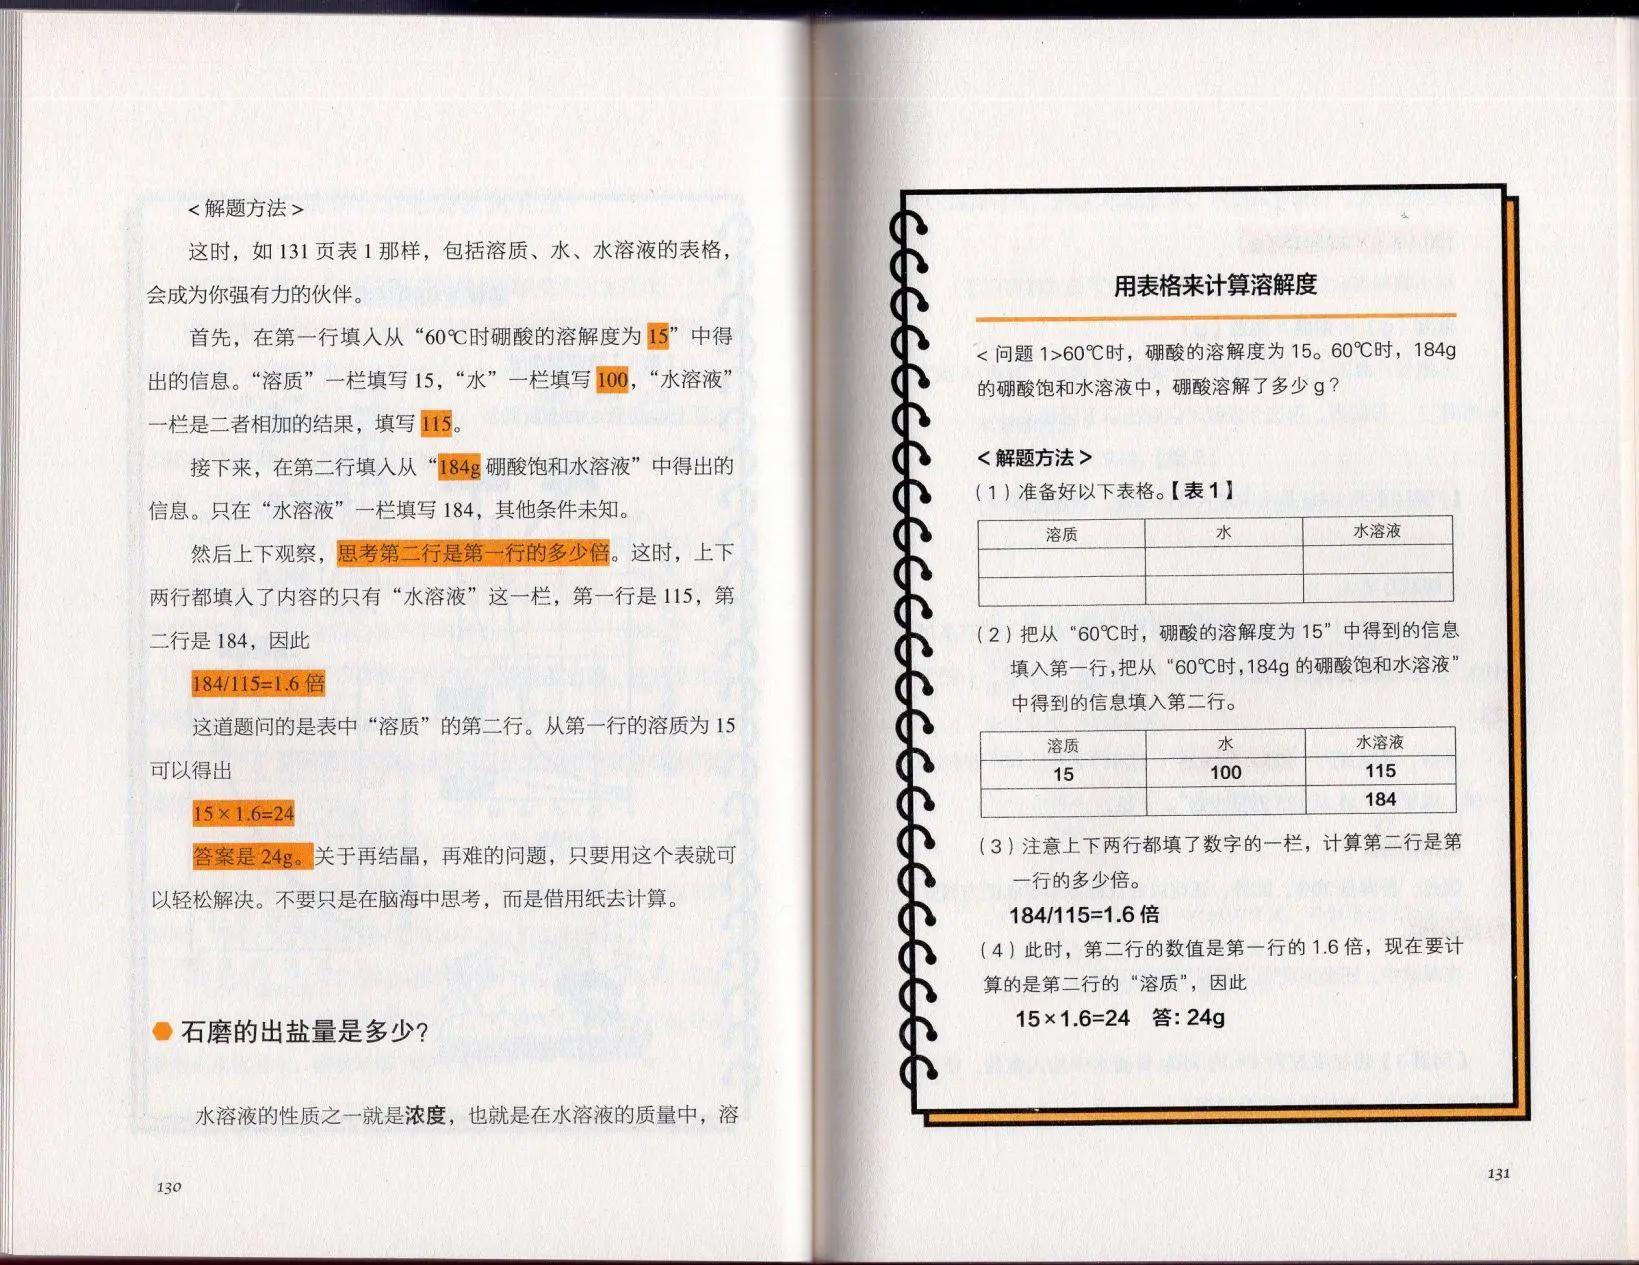 <解题方法>
这时，如131页表1那样，包括溶质、水、水溶液的表格，
会成为你强有力的伙伴。
首先，在第一行填入从“60℃时硼酸的溶解度为15”中得
出的信息。“溶质”一栏填写15，“水”一栏填写100，“水溶液”
一栏是二者相加的结果，填写115。
接下来，在第二行填入从“184g硼酸饱和水溶液”中得出的
信息。只在“水溶液”一栏填写184，其他条件未知。
然后上下观察，思考第二行是第一行的多少倍。这时，上下
两行都填入了内容的只有“水溶液”这一栏，第一行是115，第
二行是184，因此
184/115=1.6倍
这道题问的是表中“溶质”的第二行。从第一行的溶质为15
可以得出
15×1.6=24
答案是24g。关于再结晶，再难的问题，只要用这个表就可
以轻松解决。不要只是在脑海中思考，而是借用纸去计算。
石磨的出盐量是多少？
水溶液的性质之一就是浓度，也就是在水溶液的质量中，溶
130
用表格来计算溶解度
<问题1>60℃时，硼酸的溶解度为15。60℃时，184g
的硼酸饱和水溶液中，硼酸溶解了多少g？
<解题方法>
（1）准备好以下表格。【表1】
溶质 水 水溶液
（2）把从“60℃时，硼酸的溶解度为15”中得到的信息
填入第一行，把从“60℃时，184g的硼酸饱和水溶液”
中得到的信息填入第二行。
溶质 水 水溶液
15 100 115
184
（3）注意上下两行都填了数字的一栏，计算第二行是第
一行的多少倍。
184/115=1.6倍
（4）此时，第二行的数值是第一行的1.6倍，现在要计
算的是第二行的“溶质”，因此
15×1.6=24 答：24g
131